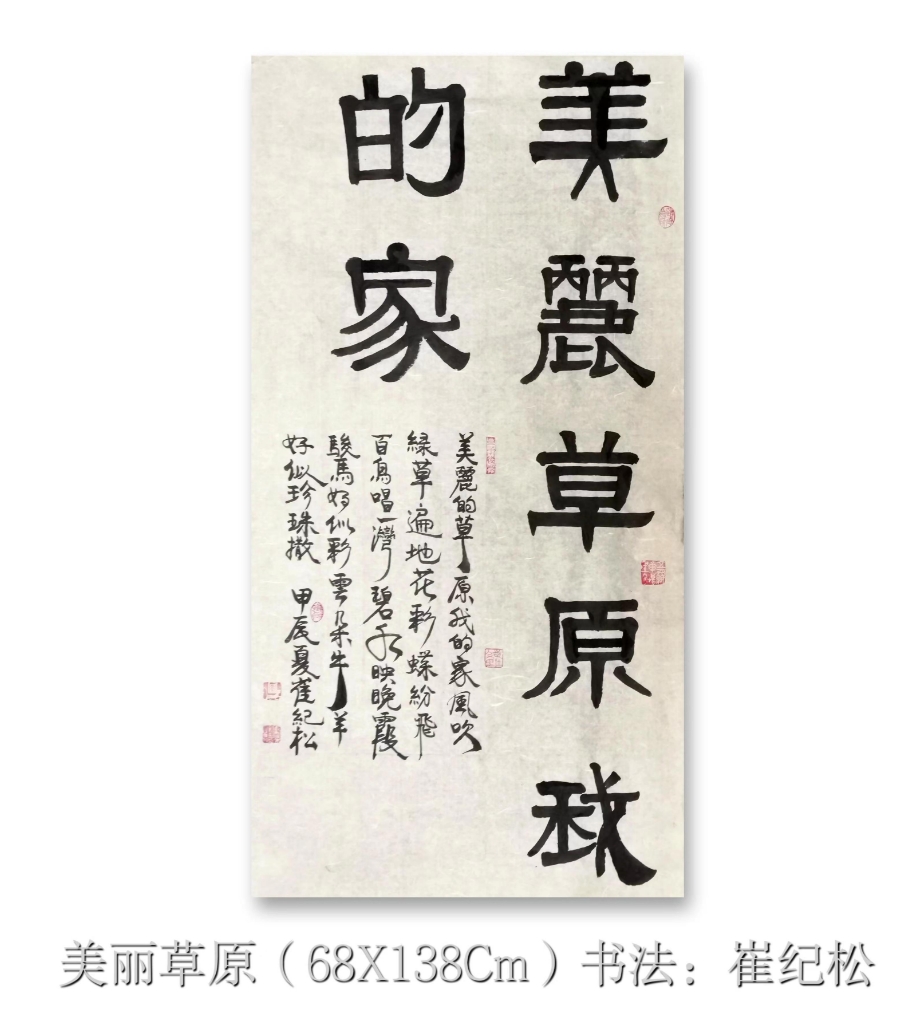 美麗草原我
的家
美麗的草原我的家風吹
綠草遍地花彩蝶紛飛
百鳥唱一灣碧水映晚霞
駿馬好似彩雲朵牛羊
好似珍珠撒 甲辰夏崔紀松
美丽草原（68X138Cm）书法：崔纪松